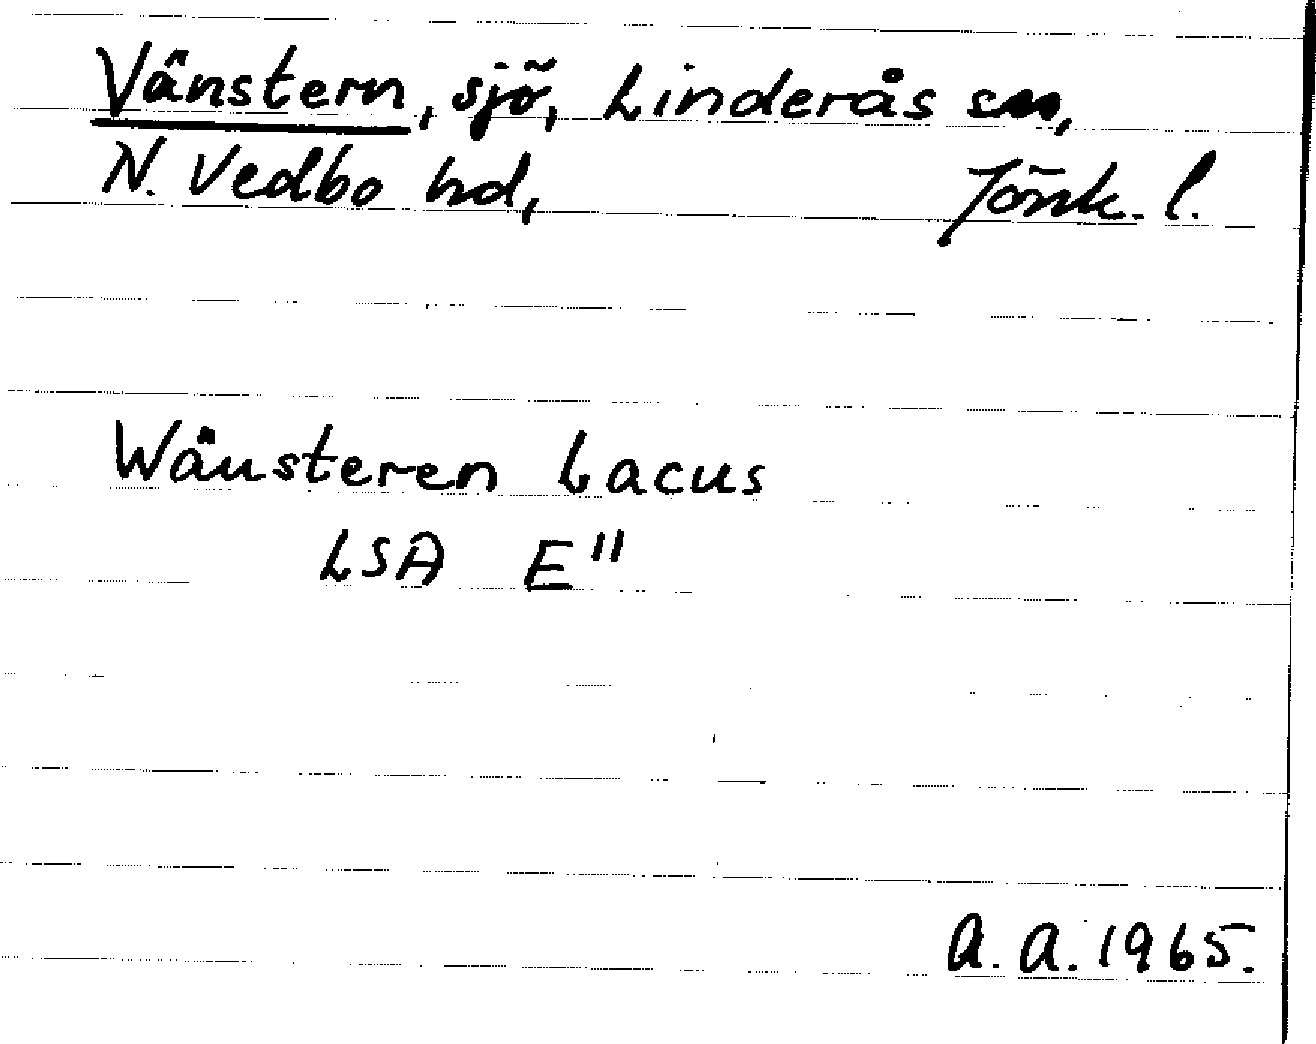 Vänstern, sjö, Linderås sn,
N. Vedbo hd, Jönk. l.
Wänsteren Lacus
LSA E"
A. A. 1965.